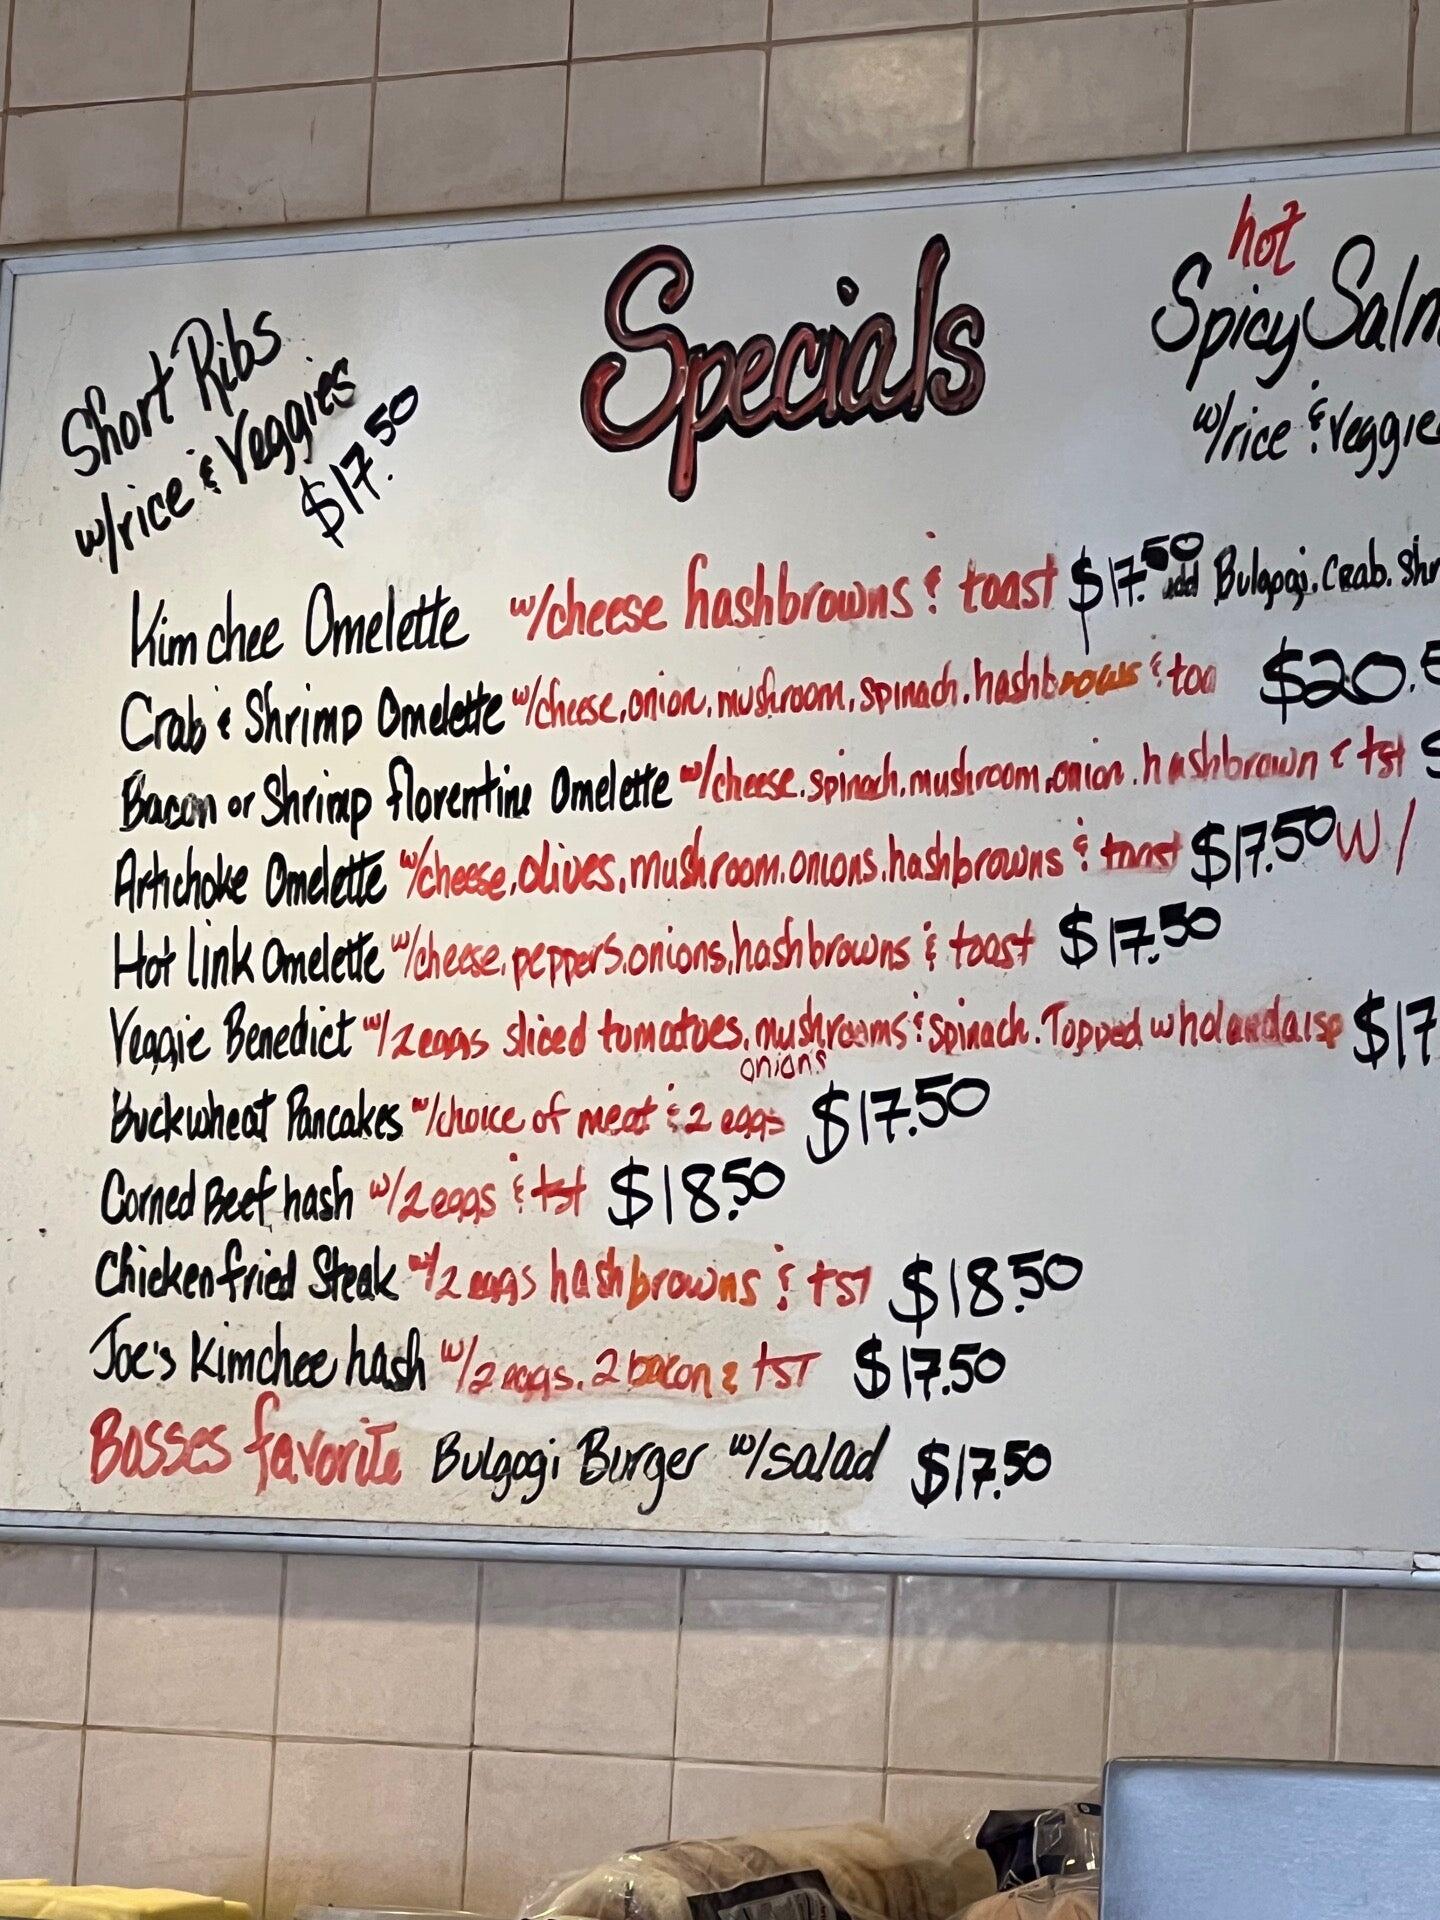 Specials
Short Ribs
w/rice & Veggies
$17.50
hot
Spicy Salm
w/rice & veggie
Kimchee Omelette w/cheese hashbrowns & toast $17.50 add Bulgogi. Crab. Shr
Crab & Shrimp Omelette w/cheese, onion, mushroom, spinach. hashbrows & toa $20.5
Bacon or Shrimp florentine Omelette w/cheese. spinach. mushroom. onion. hashbrown & tst $
Artichoke Omelette w/cheese, olives, mushroom. onions. hashbrowns & toast $17.50 w/
Hot link Omelette w/cheese, peppers. onions, hashbrowns & toast $17.50
Veggie Benedict w/2 eggs sliced tomatoes. mushrooms & spinach. Topped w holandaise $17
onions
Buckwheat Pancakes w/choice of meat & 2 eggs $17.50
Corned Beef hash w/2 eggs & tst $18.50
Chicken fried Steak w/2 eggs hashbrowns & tst $18.50
Joe's Kimchee hash w/2 eggs. 2 bacon & tst $17.50
Bosses favorite Bulgogi Burger w/salad $17.50